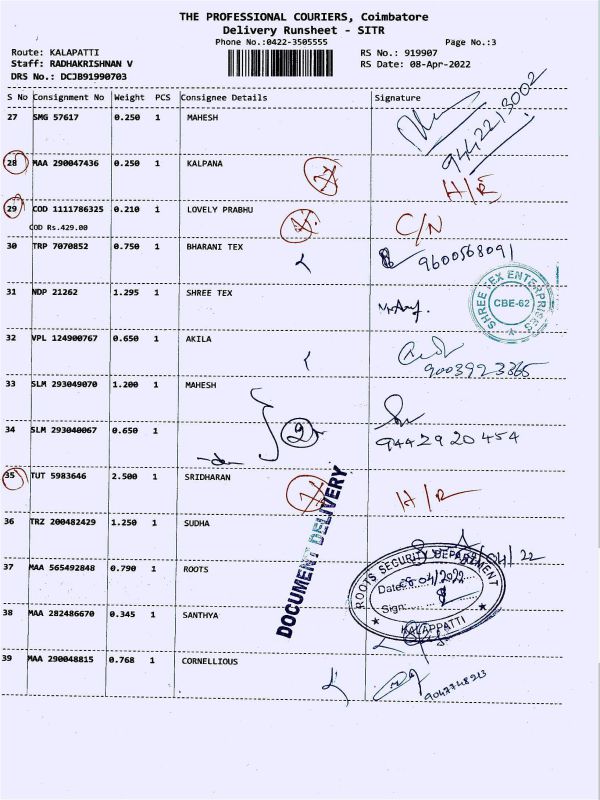 THE PROFESSIONAL COURIERS, Coimbatore
Delivery Runsheet - SITR
Phone No.:0422-3505555 Page No.:3
Route: KALAPATTI RS No.: 919907
Staff: RADHAKRISHNAN V RS Date: 08-Apr-2022
DRS No.: DCJB91990703
S No Consignment No Weight PCS Consignee Details Signature
27 SMG 57617 0.250 1 MAHESH
9442213002
28 MAA 290047436 0.250 1 KALPANA
H/R
29 COD 1111786325 0.210 1 LOVELY PRABHU C/N
COD Rs.429.00
30 TRP 7070852 0.750 1 BHARANI TEX 9600568091
31 NDP 21262 1.295 1 SHREE TEX
SHREE TEX ENTERPRISES
CBE-62
32 VPL 124900767 0.650 1 AKILA
9003923365
33 SLM 293049070 1.200 1 MAHESH
34 SLM 293040067 0.650 1 2 9442920454
-do-
35 TUT 5983646 2.500 1 SRIDHARAN H/R
DOCUMENT DELIVERY
36 TRZ 200482429 1.250 1 SUDHA
37 MAA 565492848 0.790 1 ROOTS
ROOTS SECURITY DEPARTMENT
Date: 08/04/2022
Sign:
KALAPPATTI
38 MAA 282486670 0.345 1 SANTHYA
39 MAA 290048815 0.768 1 CORNELLIOUS